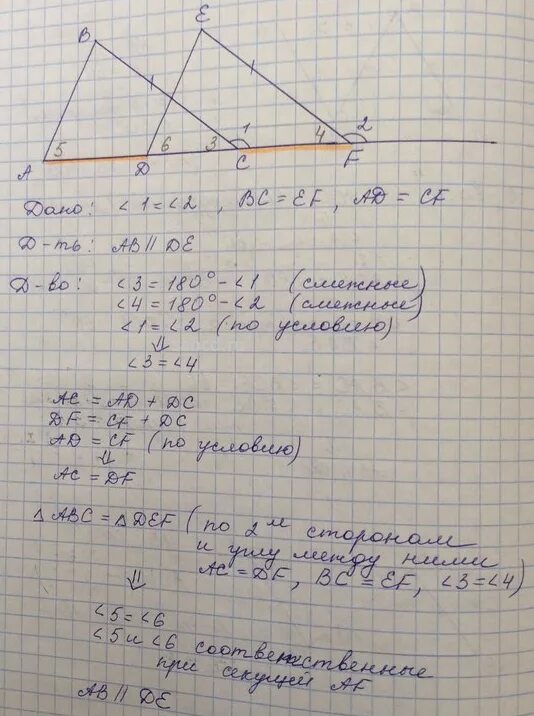 E
B
1
2
5
6
3
4
A
D
C
F
Дано: ∠1=∠2 , BC = EF, AD = CF
Д-ть: AB ∥ DE
Д-во: ∠3 = 180° - ∠1 (смежные)
∠4 = 180° - ∠2 (смежные)
∠1 = ∠2 (по условию)
⇓
∠3 = ∠4
AC = AD + DC
DF = CF + DC
AD = CF (по условию)
⇓
AC = DF
△ABC = △DEF (по 2м сторонам
и углу между ними
AC = DF, BC = EF, ∠3=∠4)
⇓
∠5 = ∠6
∠5 и ∠6 соответственные
при секущей AF
AB ∥ DE